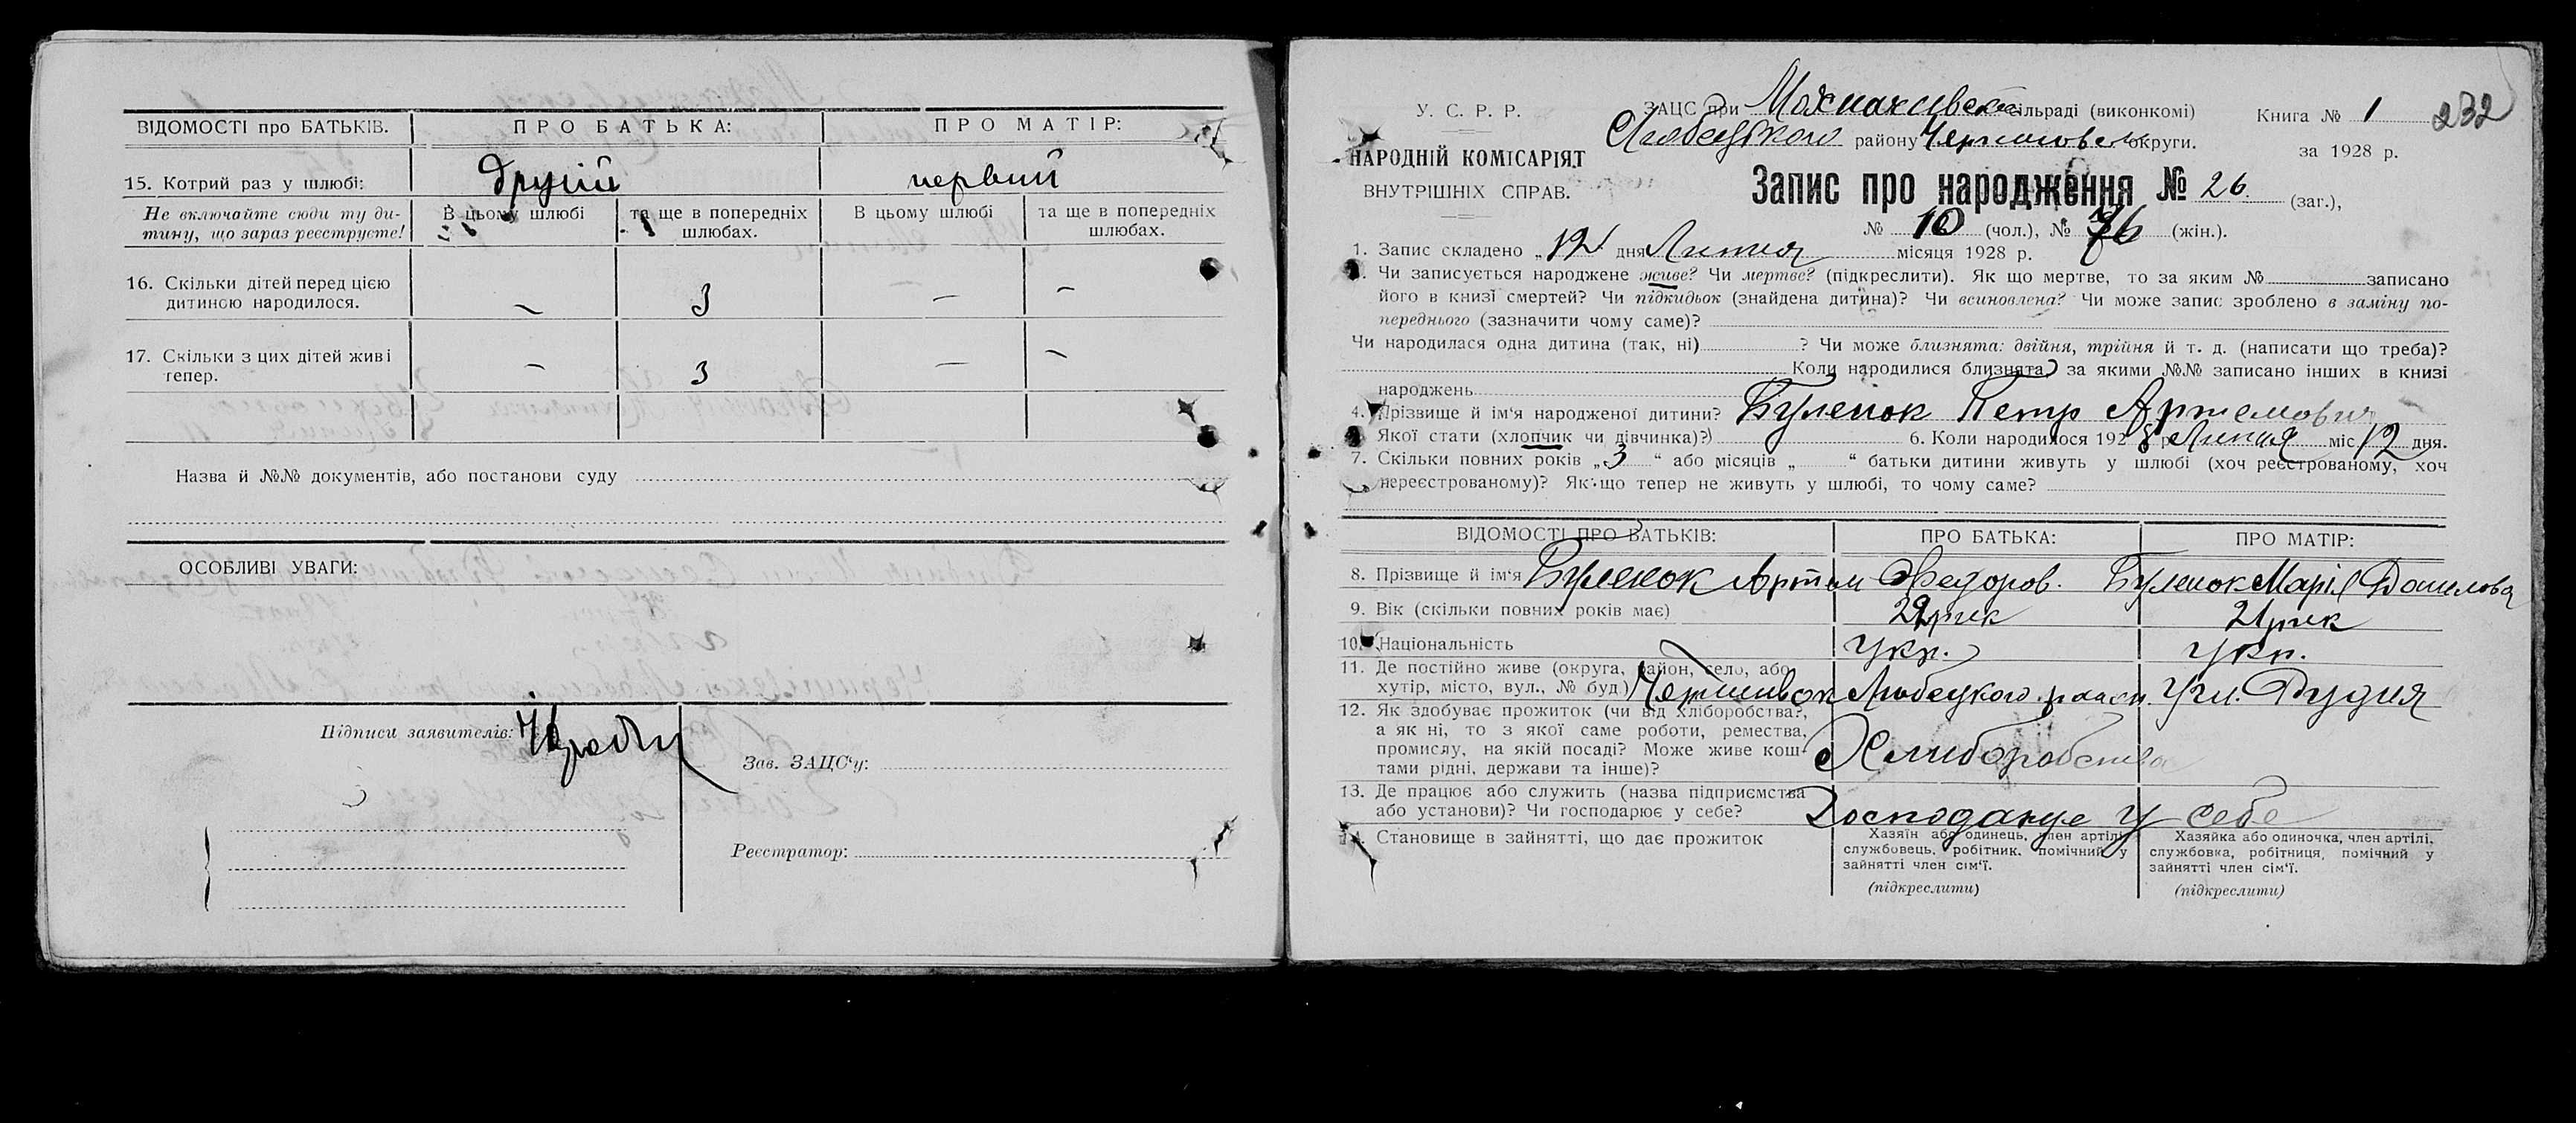 ВІДОМОСТІ про БАТЬКІВ. ПРО БАТЬКА: ПРО МАТІР:
15. Котрий раз у шлюбі: другий первий
Не включайте сюди ту дитину, що зараз реєструєте! В цьому шлюбі та ще в попередніх шлюбах. В цьому шлюбі та ще в попередніх шлюбах.
16. Скільки дітей перед цією дитиною народилося. – 3 – –
17. Скільки з цих дітей живі тепер. – 3 – –
Назва й №№ документів, або постанови суду
ОСОБЛИВІ УВАГИ:
Підписи заявителів:
Зав. ЗАЦС‘у:
Реєстратор:
У. С. Р. Р.
НАРОДНІЙ КОМІСАРІЯТ
ВНУТРІШНІХ СПРАВ.
ЗАЦС при сільраді (виконкомі)
Любецького району округи.
Книга № 1 232
за 1928 р.
Запис про народження № 26 (заг.),
№ 10 (чол.), № (жін.).
1. Запис складено „12“ дня Липня місяця 1928 р.
Чи записується народжене живе? Чи мертве? (підкреслити). Як що мертве, то за яким № записано
його в книзі смертей? Чи підкидьок (знайдена дитина)? Чи всиновлена? Чи може запис зроблено в заміну по-
переднього (зазначити чому саме)?
Чи народилася одна дитина (так, ні) ? Чи може близнята: двійня, трійня й т. д. (написати що треба)?
Коли народилися близнята, за якими №№ записано інших в книзі
народжень
4. Прізвище й ім‘я народженої дитини? Буленок Петр Артемович
Якої стати (хлопчик чи дівчинка)? 6. Коли народилося 1928 р. Липня міс. 12 дня.
7. Скільки повних років „3“ або місяців „ “ батьки дитини живуть у шлюбі (хоч реєстрованому, хоч
нереєстрованому)? Як-що тепер не живуть у шлюбі, то чому саме?
ВІДОМОСТІ ПРО БАТЬКІВ: ПРО БАТЬКА: ПРО МАТІР:
8. Прізвище й ім‘я Буленок Артем Федоров. Буленок Марія Данилова
9. Вік (скільки повних років має) 29 рик 21 рик
10. Національність Укр. Укр.
11. Де постійно живе (округа, район, село, або
хутір, місто, вул., № буд.) Любецкого Рудня
12. Як здобуває прожиток (чи від хліборобства?,
а як ні, то з якої саме роботи, ремества,
промислу, на якій посаді? Може живе кош-
тами рідні, держави та інше)? Хлиборобства
13. Де працює або служить (назва підприємства
або установи)? Чи господарює у себе? Господарує У себе
14. Становище в зайнятті, що дає прожиток
Хазяїн або одинець, член артілі, службовець, робітник, помічний у зайнятті член сім‘ї.
(підкреслити)
Хазяйка або одиночка, член артілі, службовка, робітниця, помічний у зайнятті член сім‘ї.
(підкреслити)